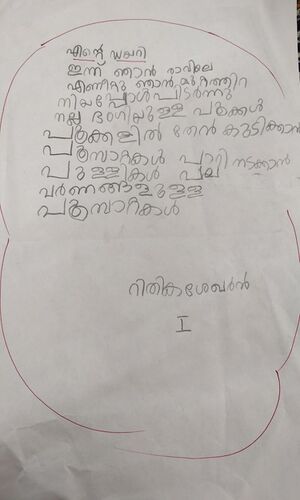 എന്റെ ഡയറി
ഇന്ന് ഞാൻ രാവിലെ
എണീറ്റു ഞാൻ മുറ്റത്തിറ
നിയപ്പോൾ വിടർന്നു
നല്ല ഭംഗിയുള്ള പൂക്കൾ
പൂക്കളിൽ തേൻ കുടിക്കാൻ
പൂമ്പാറ്റകൾ പാറി നടക്കാൻ
പുള്ളികൾ പല
വർണങ്ങളുള്ള
പൂമ്പാറ്റകൾ
റിതിക ശേഖർൻ
I